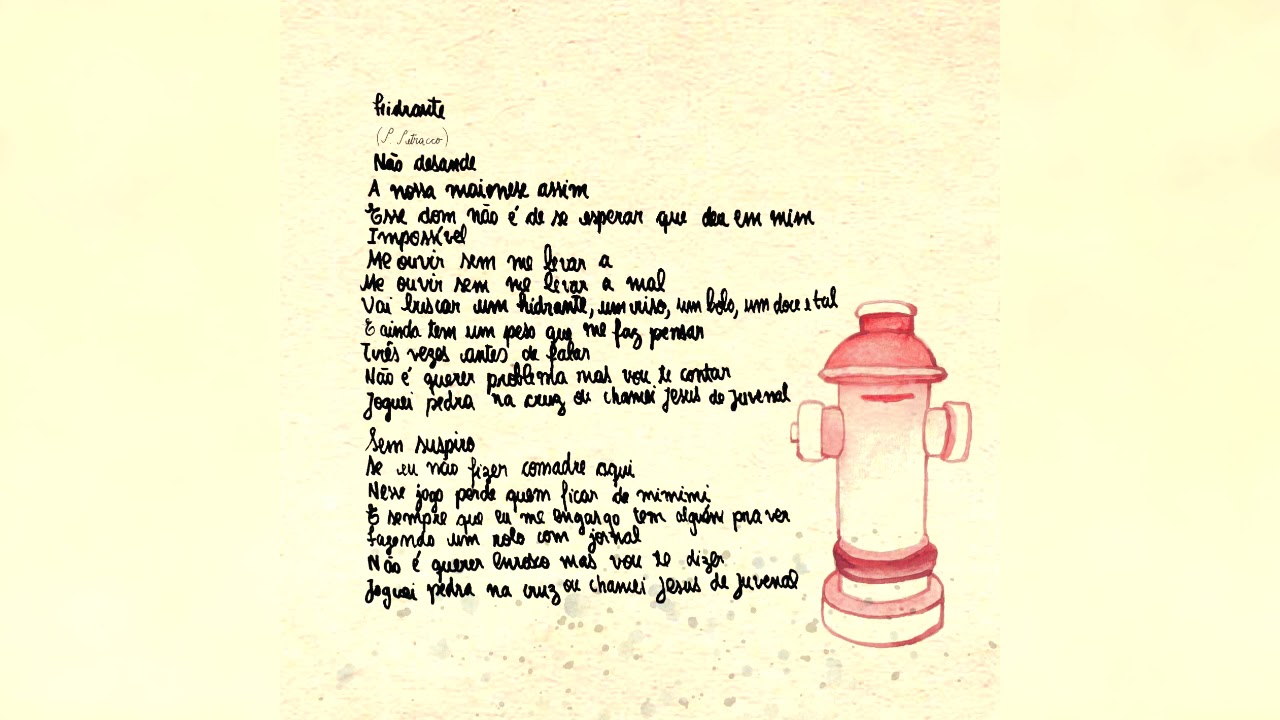 Hidrante
(P. Petracco)
Não desande
A nossa maionese assim
Esse dom não é de se esperar que dea em mim
Impossível
Me ouvir sem me levar a
Me ouvir sem me levar a mal
Vai buscar um hidrante, um riso, um bolo, um doce e tal
E ainda tem um peso que me faz pensar
Três vezes antes de falar
Não é querer problema mas vou te contar
Joguei pedra na cruz ou chamei Jesus de Juvenal
Sem suspiro
Se eu não fizer comadre aqui
Nesse jogo perde quem ficar de mimimi
E sempre que eu me engasgo tem alguém pra ver
Fazendo um rolo com jornal
Não é querer enrosco mas vou te dizer
Joguei pedra na cruz ou chamei Jesus de Juvenal